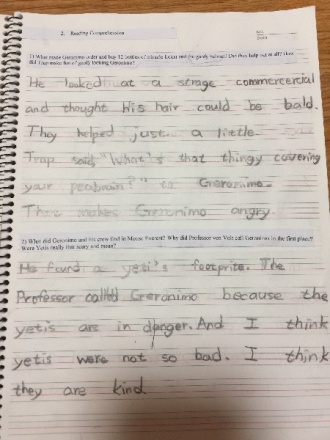 2. Reading Comprehension
1) What made Geronimo order and buy 12 bottles of miracle lotion and the garlic balsam? Did they help out at all? How
did Trap make fun of garlic looking Geronimo?
He looked at a strage commercercial
and thought His hair could be bald.
They helped just a little.
Trap said, "What's that thingy covering
your peabrain?" to Greronimo.
That makes Greronimo angry.
2) What did Geronimo and his crew find in Mouse Forest? Why did Professor von Volt call Geronimo in the first place?
Were Yetis really that scary and mean?
He found a yeti's footprite. The
Professor called Greronimo because the
yetis are in danger. And I think
yetis were not so bad. I think
they are kind.